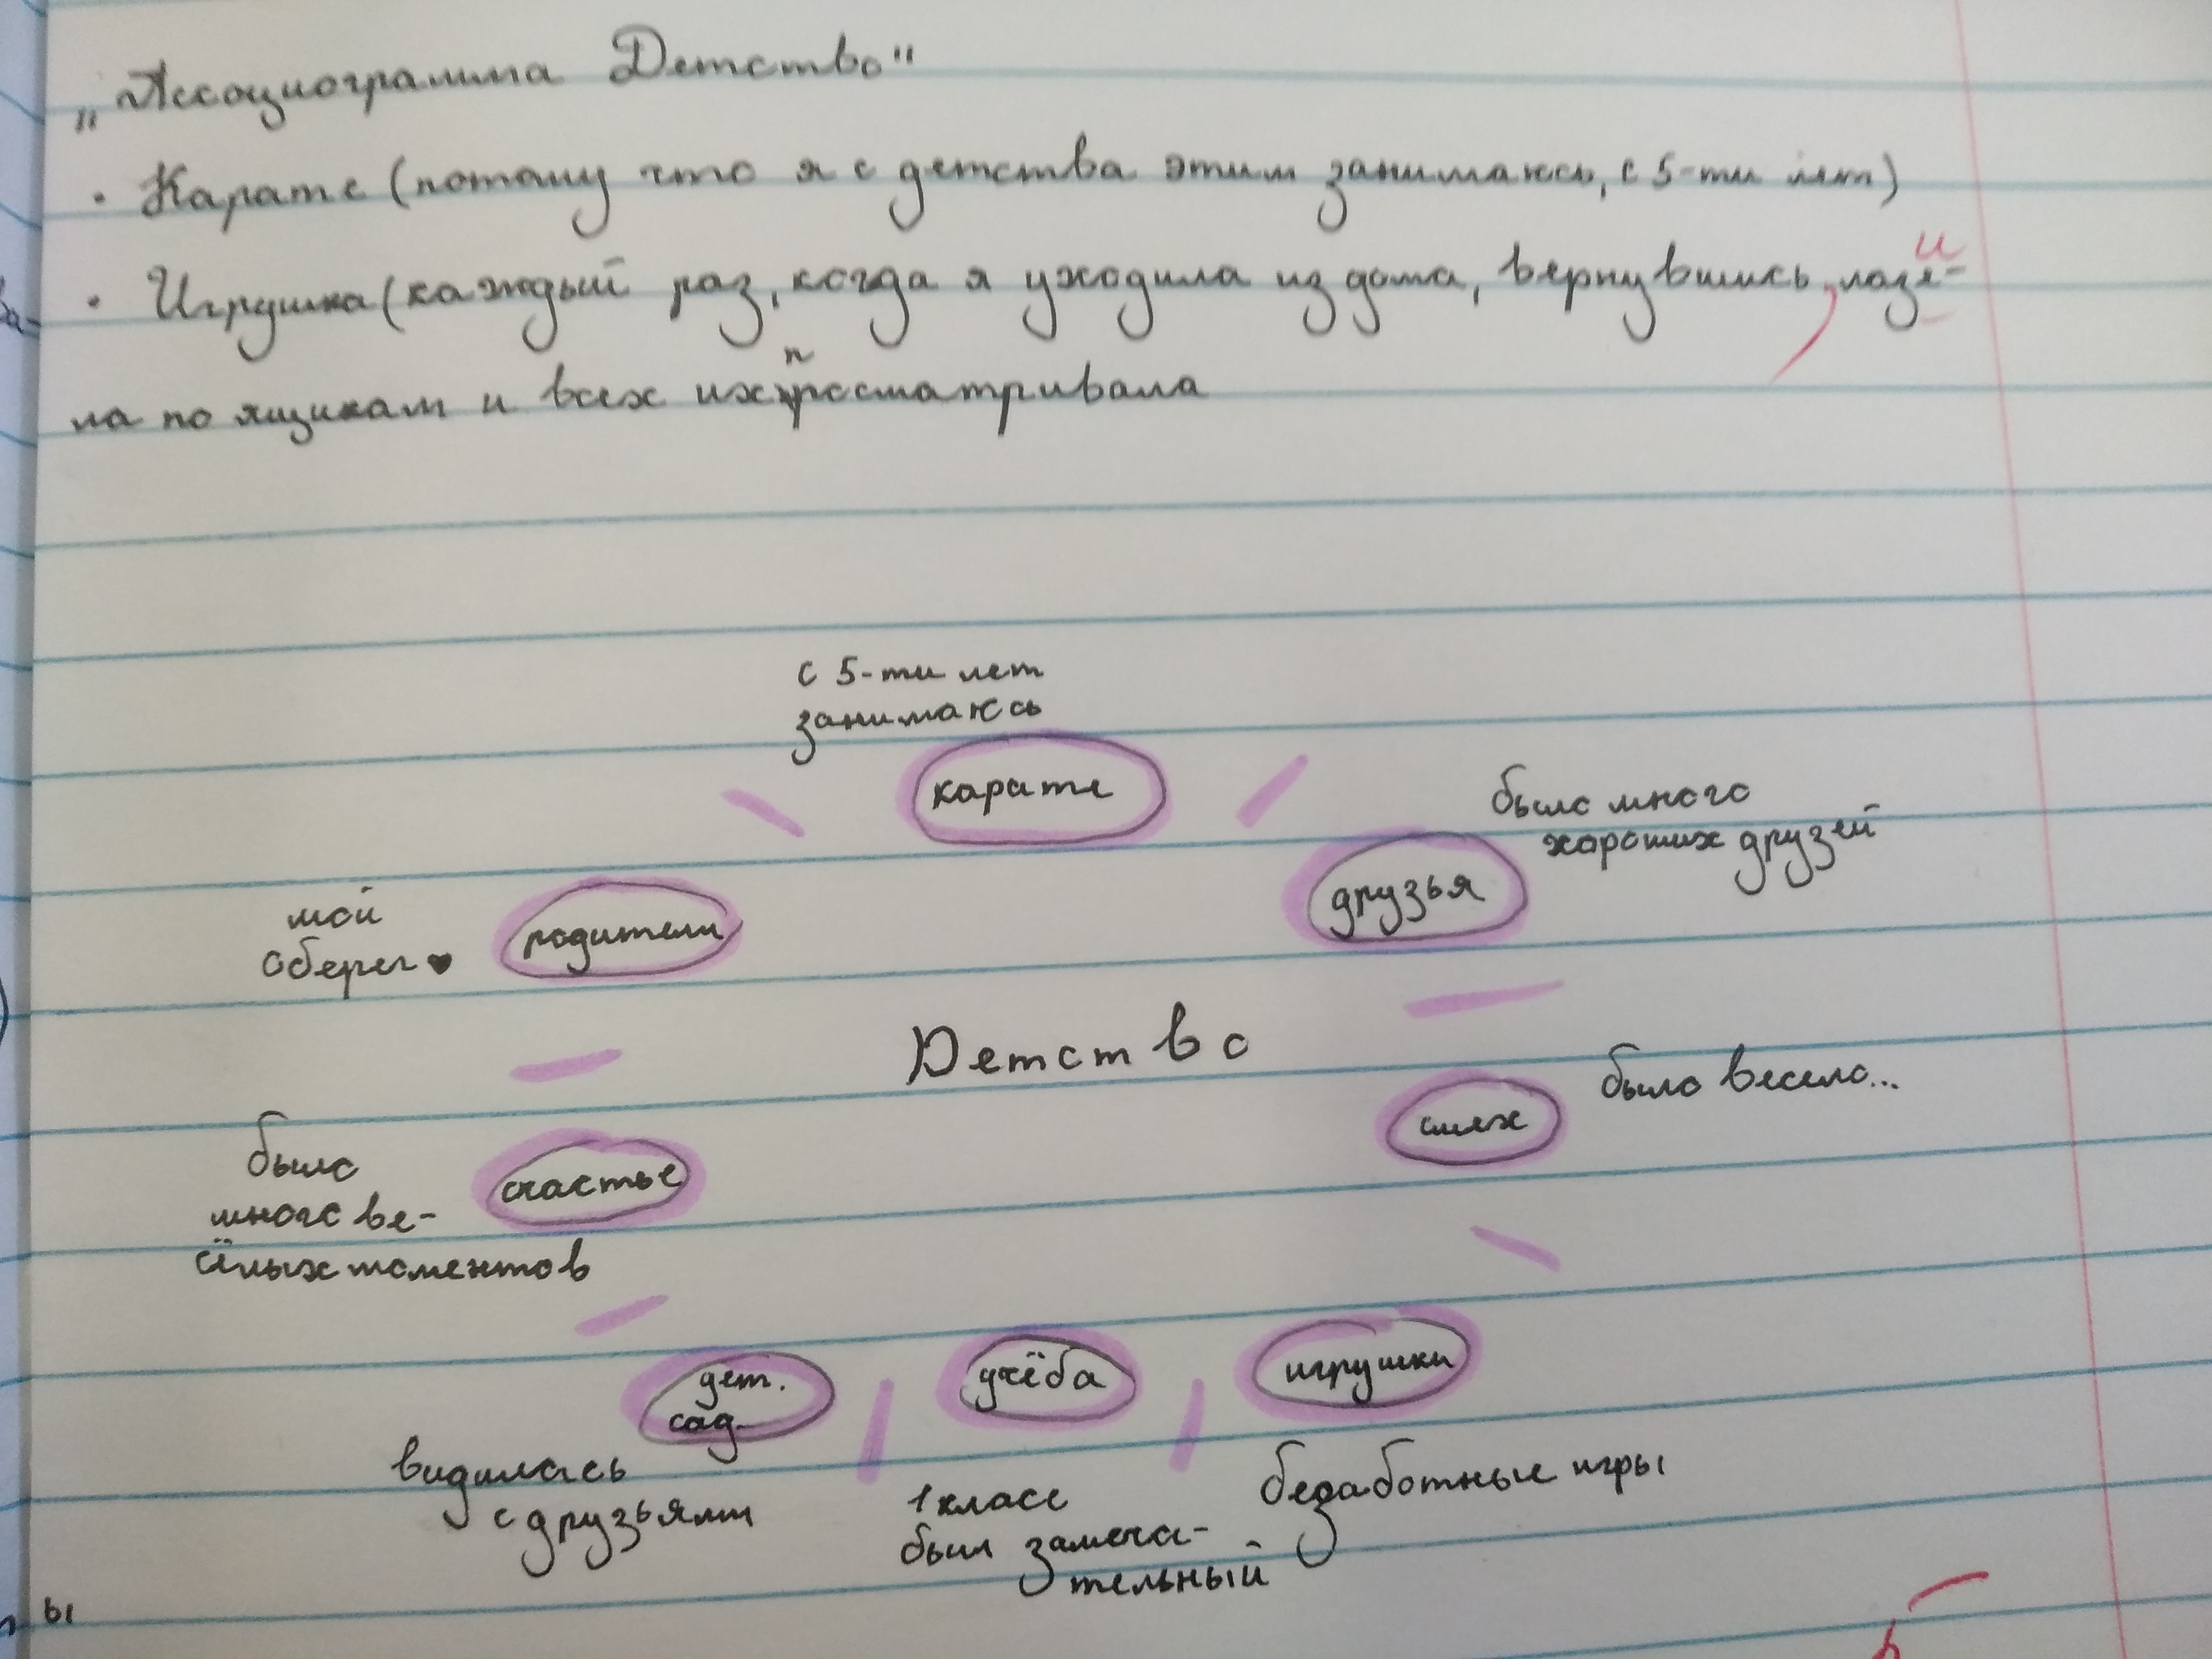 „Ассоциограмма Детство"
· Карате (потому что я с детства этим занимаюсь, с 5-ти лет)
· Игрушка (каждый раз, когда я уходила из дома, вернувшись, лазе-
и
ла по ящикам и всех их просматривала
с 5-ти лет
занимаюсь
карате
было много
хороших друзей
друзья
мой
оберег♥
родители
Детство
было весело...
смех
было
много ве-
сёлых моментов
счастье
дет.
сад
учёба
игрушки
виделась
с друзьями
1 класс
был замеча-
тельный
беззаботные игры
ы